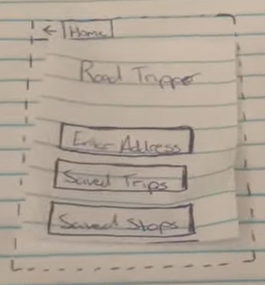 ← Home
Road Tripper
Enter Address
Saved Trips
Saved Stops